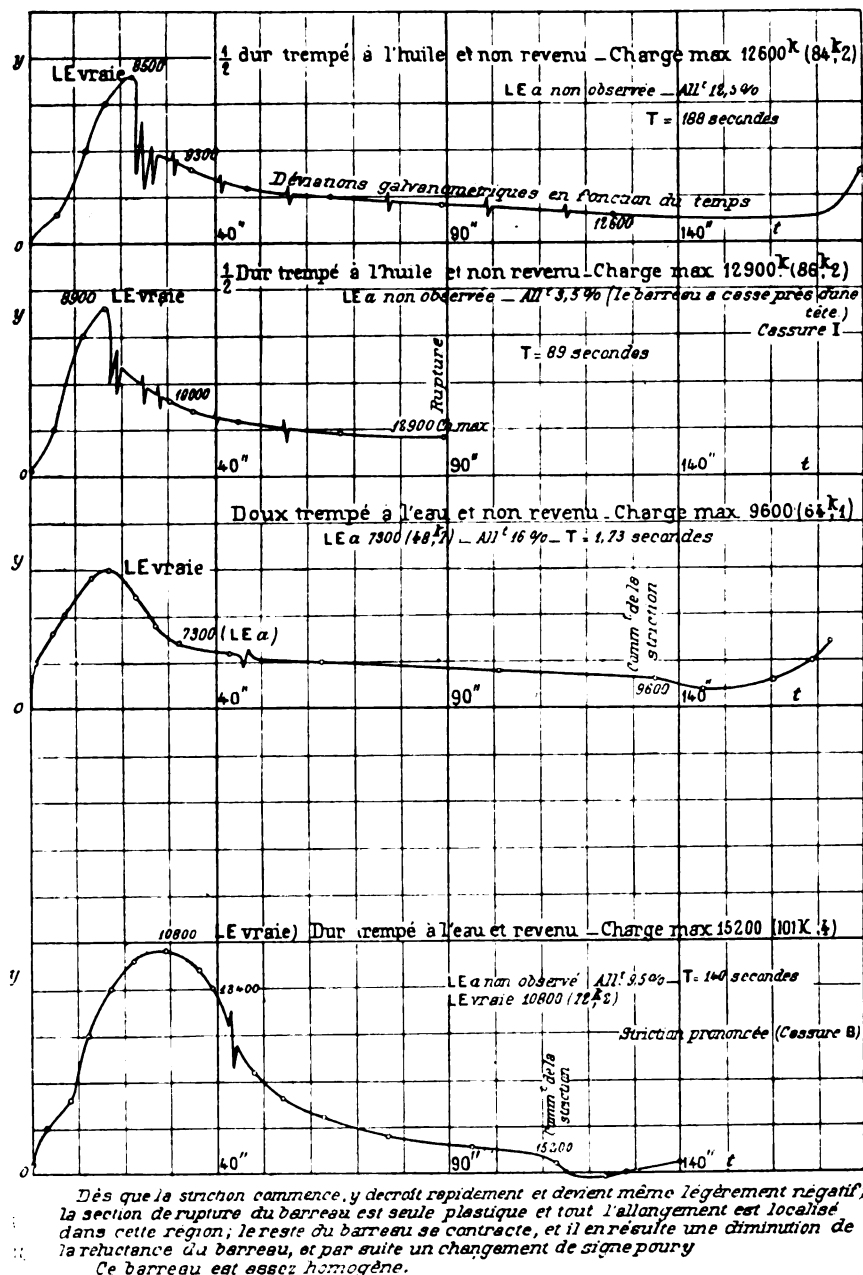 ½ dur trempé à l'huile et non revenu _ Charge max 12600ᵏ (84ᵏ,2)
y
LE vraie
8500
LE a non observée _ Allᵗ 12,5 %
T = 188 secondes
9300
Déviations galvanométriques en fonction du temps
12600
o
40"
90"
140"
t
½ Dur trempé à l'huile et non revenu _ Charge max 12900ᵏ (86ᵏ,2)
8900
LE vraie
LE a non observée _ Allᵗ 3,5 % (le barreau a cassé près d'une
tête.)
y
Cassure I
T = 89 secondes
Rupture
10000
12900 Ch max
o
40"
90"
140"
t
Doux trempé à l'eau et non revenu _ Charge max 9600 (64ᵏ,1)
LE a 7300 (48ᵏ,7) _ Allᵗ 16 % _ T = 1,73 secondes
y
LE vraie
7300 (LE a)
Commᵗ de la
striction
9600
o
40"
90"
140"
t
10800
LE vraie) Dur trempé à l'eau et revenu _ Charge max 15200 (101K,4)
y
LE a non observé Allᵗ 9.5 % _ T = 140 secondes
LE vraie 10800 (72ᵏ,2)
13400
Striction prononcée (Cassure B)
Commᵗ de la
striction
15200
o
40"
90"
140"
t
Dès que la striction commence, y decroît rapidement et devient même légèrement négatif,
la section de rupture du barreau est seule plastique et tout l'allongement est localisé
dans cette région; le reste du barreau se contracte, et il en résulte une diminution de
la reluctance du barreau, et par suite un changement de signe pour y
Ce barreau est assez homogène.